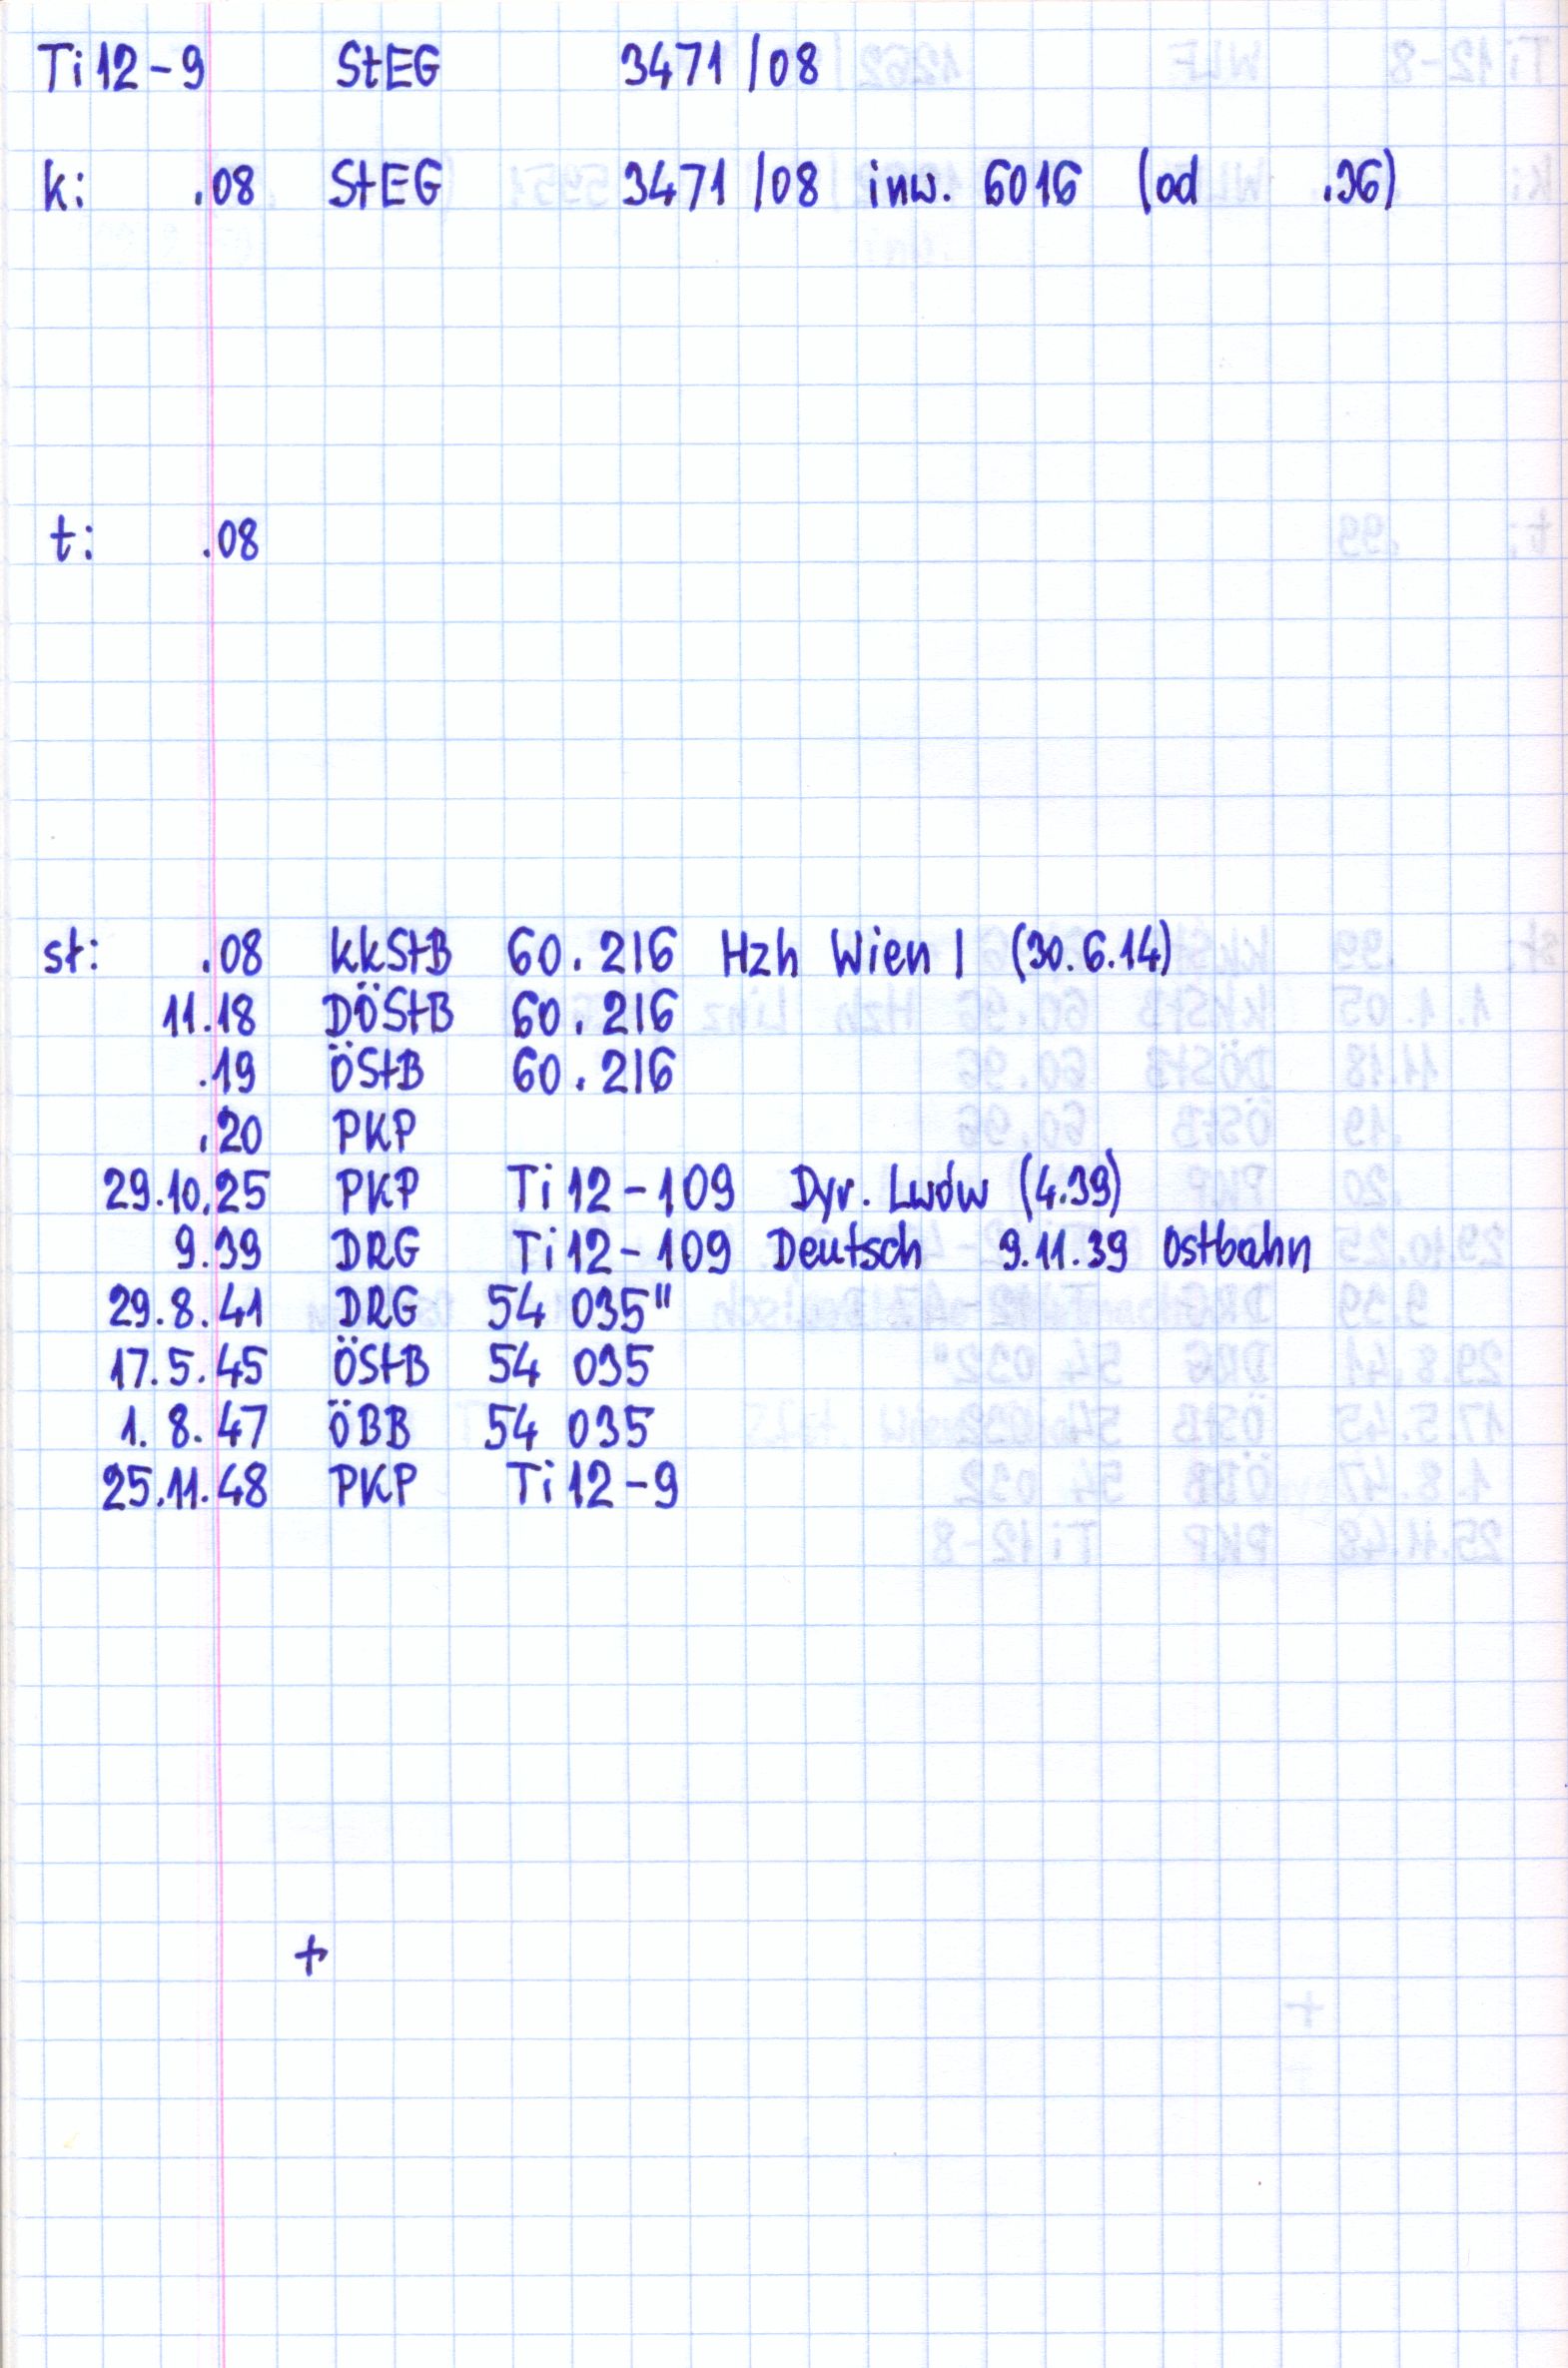 Ti12-9 StEG 3471/08
k: .08 StEG 3471/08 inw. 6016 (od .36)
t: .08
st: .08 kkStB 60.216 Hzh Wien I (30.6.14)
11.18 DÖStB 60.216
.19 ÖStB 60.216
.20 PKP
29.10.25 PKP Ti12-109 Dyr. Lwów (4.39)
9.39 DRG Ti12-109 Deutsch 9.11.39 Ostbahn
29.8.41 DRG 54 035"
17.5.45 ÖStB 54 035
1.8.47 ÖBB 54 035
25.11.48 PKP Ti12-9
+